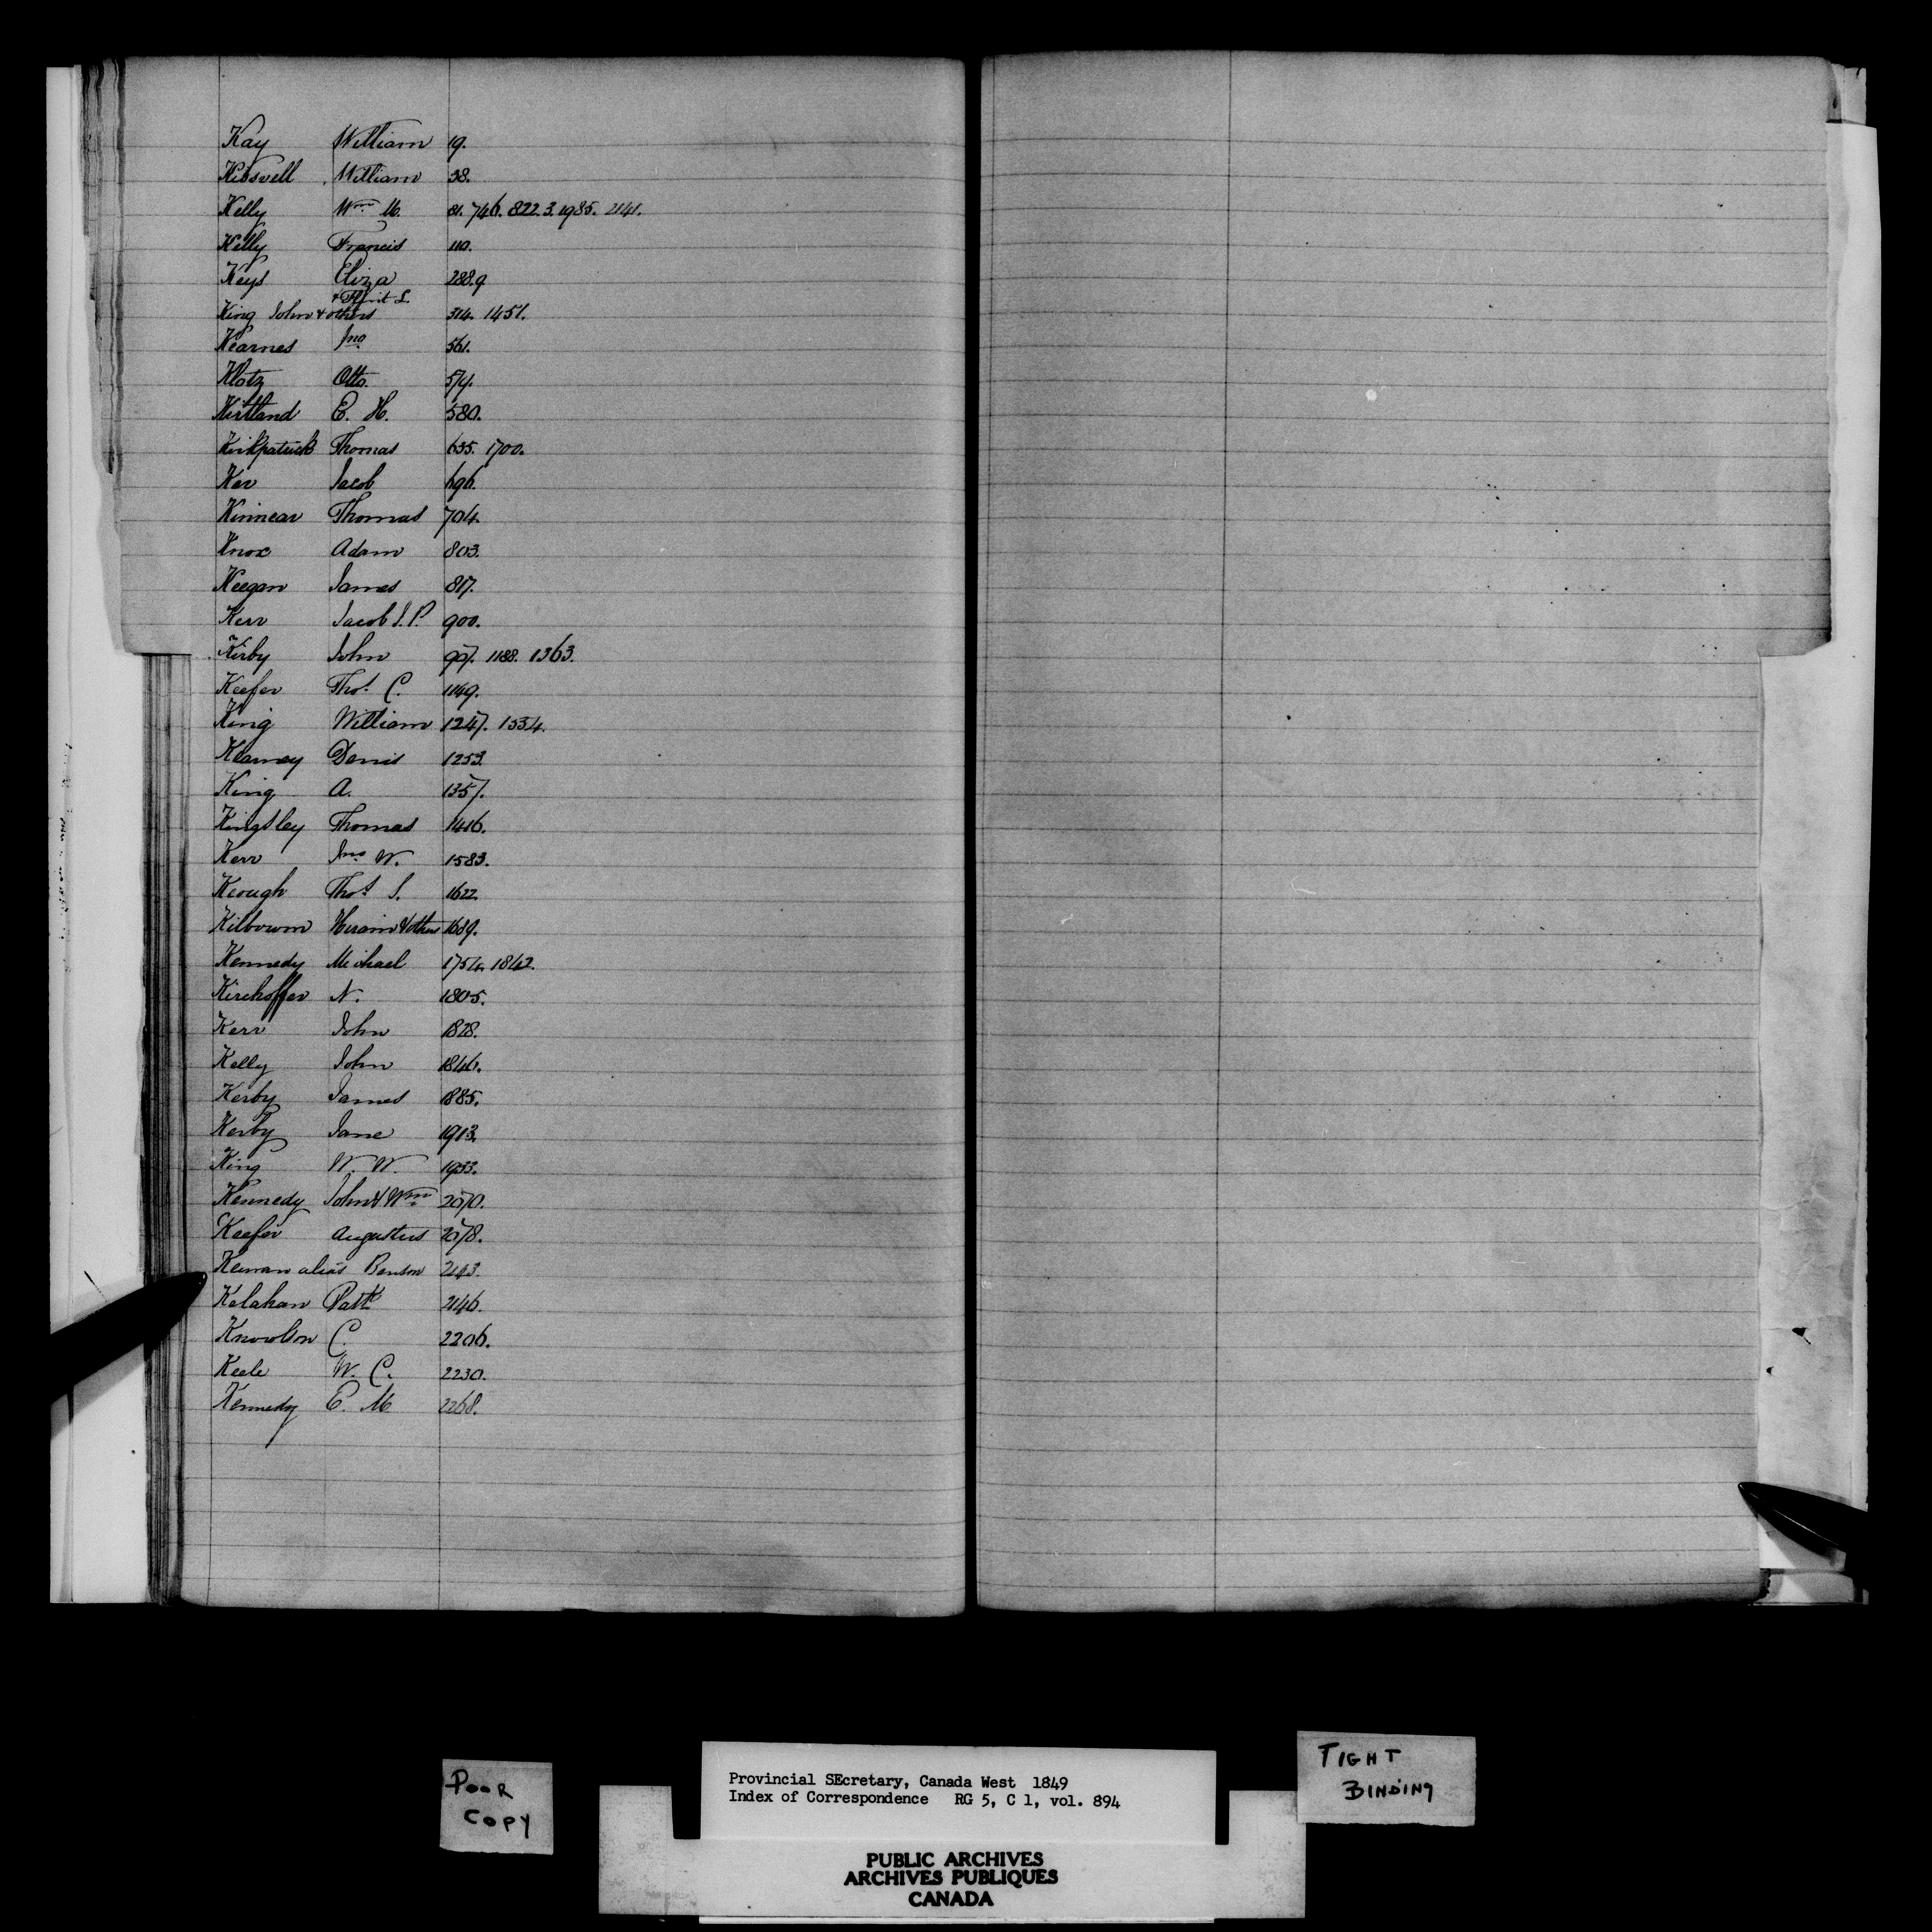 Kay William 19.
Kissvell William 38.
Kelly Wm M. 81. 746. 822.3. 1985. 2141.
Kelly Francis 110.
Keys Eliza 288.9
King John & others 314. 1451.
Kearnes Jno 561.
Klotz Otto. 574.
Kirtland E. H. 580.
Kirkpatrick Thomas 635. 1700.
Ker Jacob 696.
Kinnear Thomas 704.
Knox Adam 803.
Keegan James 817.
Kerr Jacob J.P. 900.
Kirby John 907. 1188. 1363.
Keefer Thos. C. 1149.
King William 1247. 1534.
Kearney Denis 1253.
King A. 1357.
Kingsley Thomas 1416.
Kerr Jno W. 1583.
Keough Thos J. 1622.
Kilbourn Hiram & others 1689.
Kennedy Michael 1754. 1842.
Kirchoffer N. 1805.
Kerr John 1828.
Kelly John 1846.
Kerby James 1885.
Kerby Jane 1913.
King W. W. 1933.
Kennedy John & Wm 2070.
Keefer Augustus 2078.
alias Benson 2143.
Kelahan Patk 2146.
Knowlson C. 2206.
Keele W. C. 2230.
Kennedy E. M. 2268.
POOR
COPY
Provincial SEcretary, Canada West 1849
Index of Correspondence RG 5, C 1, vol. 894
PUBLIC ARCHIVES
ARCHIVES PUBLIQUES
CANADA
TIGHT
BINDING